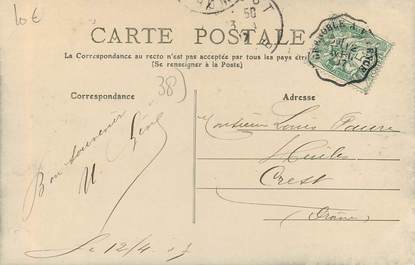 10€
CARTE POSTALE
La Correspondance au recto n'est pas acceptée par tous les pays étrangers
(Se renseigner à la Poste)
38)
Correspondance
Adresse
Bon souvenir
Monsieur Louis Faure
Huiles
Crest
(Drôme)
12/4
GRENOBLE